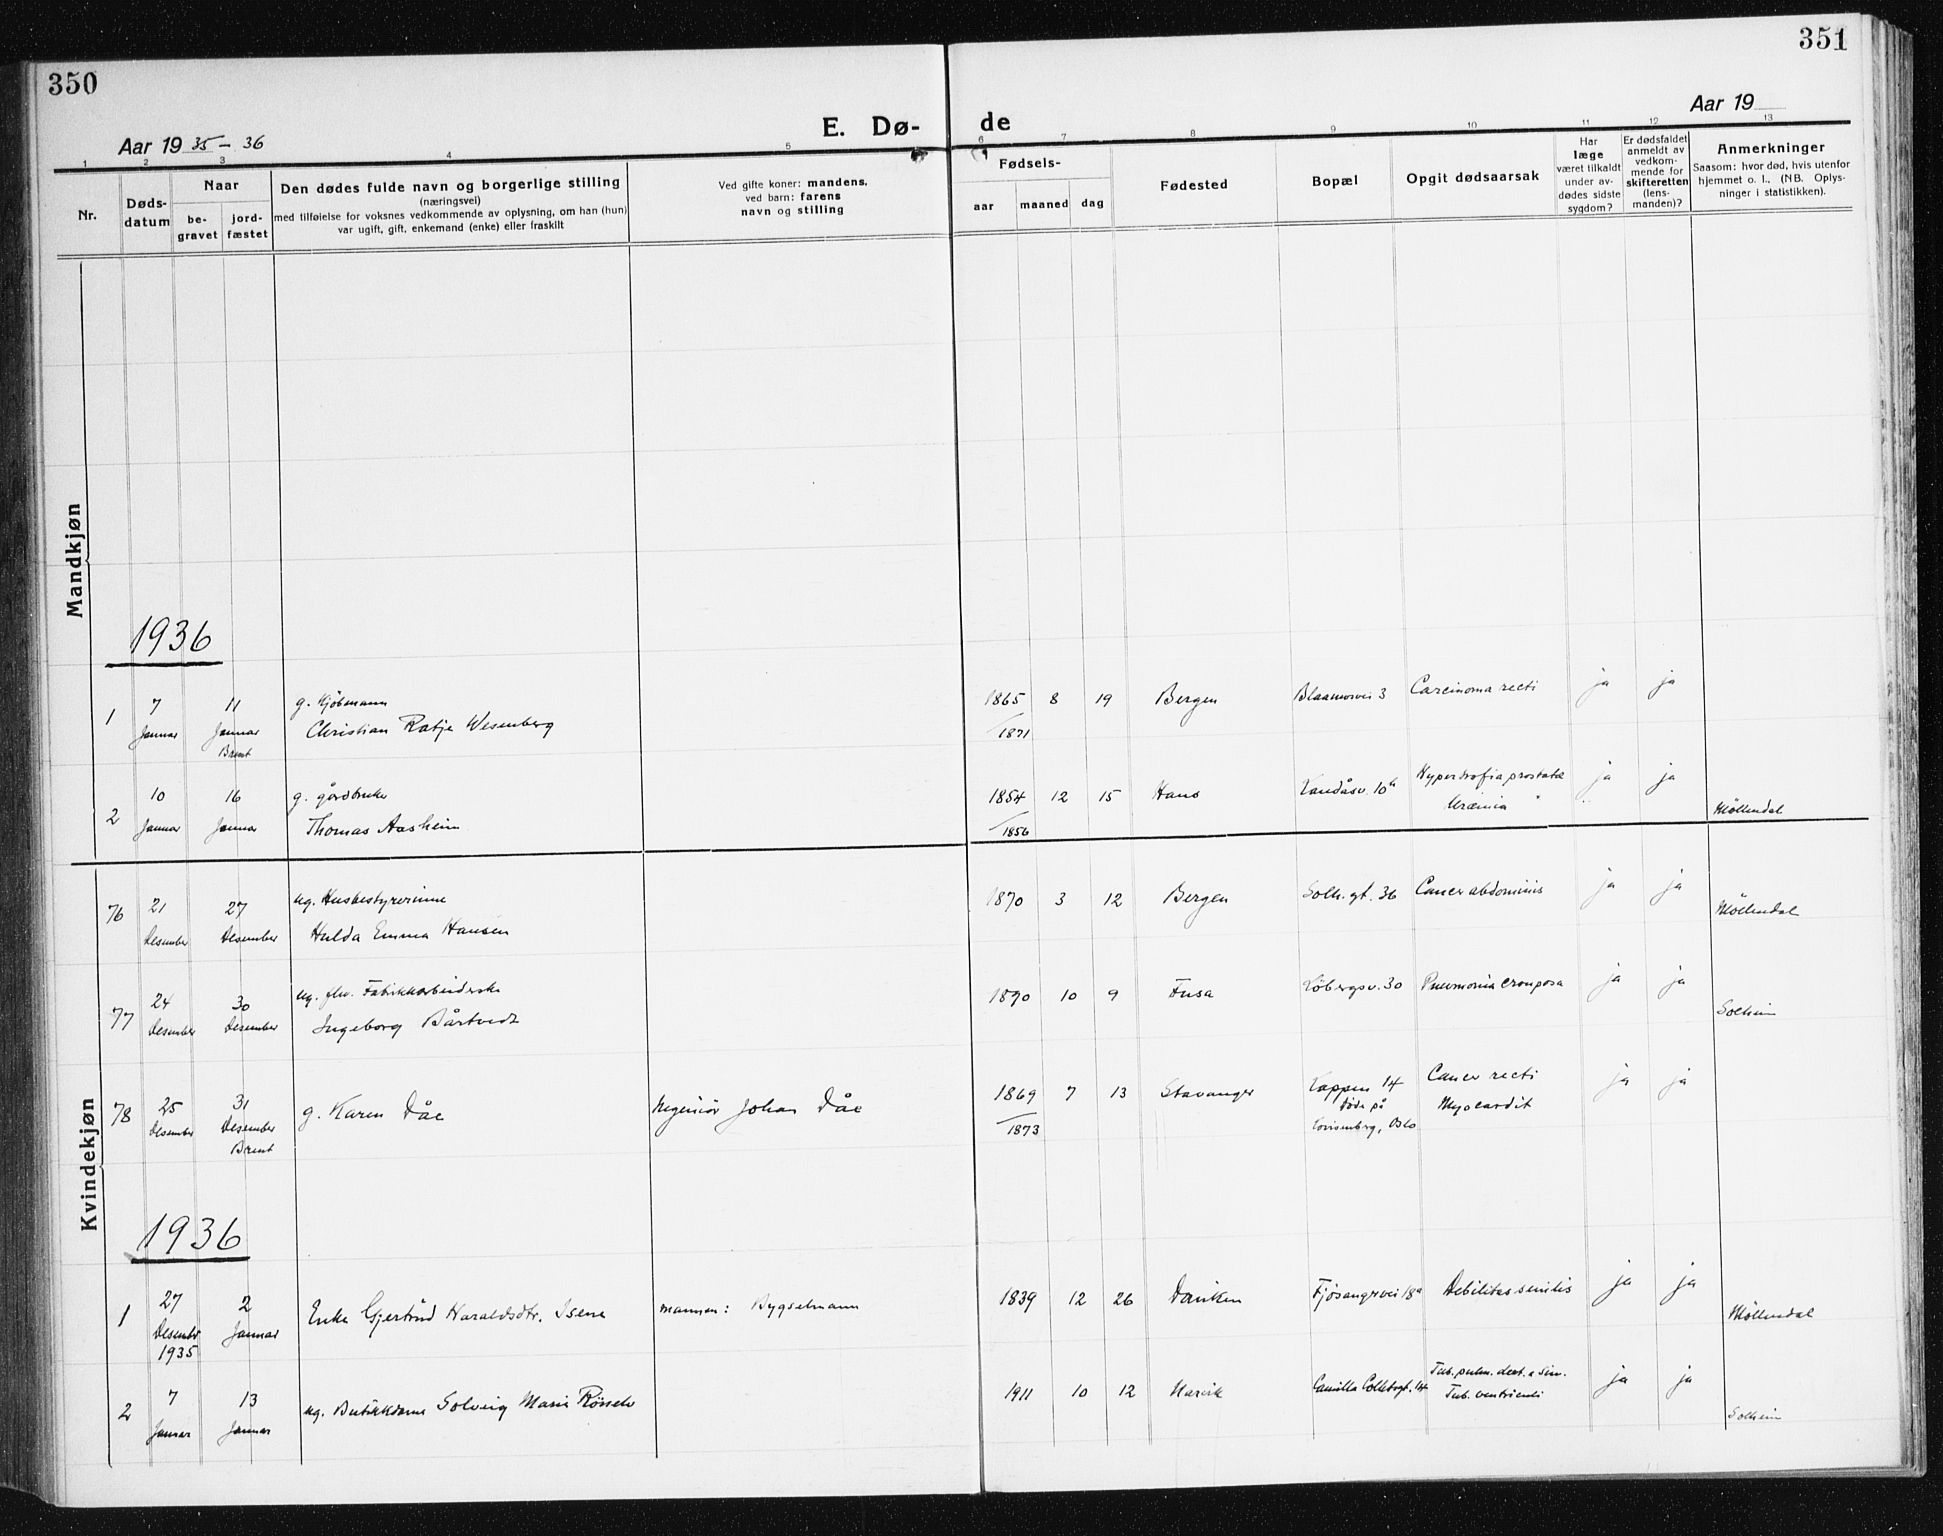 350
351
Aar 1935-36
E. Dø-
de
Aar 19
1 2 3 4 5 6 7 8 9 10 11 12 13
Nr.
Døds-
datum
Naar
be-
gravet
jord-
fæstet
Den dødes fulde navn og borgerlige stilling
(næringsvei)
med tilføielse for voksnes vedkommende av oplysning, om han (hun)
var ugift, gift, enkemand (enke) eller fraskilt
Ved gifte koner: mandens,
ved barn: farens
navn og stilling
Fødsels-
aar
maaned
dag
Fødested
Bopæl
Opgit dødsaarsak
Har
læge
været tilkaldt
under av-
dødes sidste
sygdom?
Er dødsfaldet
anmeldt av
vedkom-
mende for
skifteretten
(lens-
manden)?
Anmerkninger
Saasom: hvor død, hvis utenfor
hjemmet o. l., (NB. Oplys-
ninger i statistikken).
Mandkjøn
1936
1
7
Januar
11
Januar
Brent
g. Kjøbmann
Christian Ratje Wesenberg
1865 8 19
1871
Bergen
3
Carcinoma recti
ja
ja
2
10
Januar
16
Januar
g. gårdbruker
Thomas Aasheim
1854 12 15
1856
Haus
Landåsv. 10b
Hyperdrofia prostatæ
Uræmia
ja
ja
Møllendal
Kvindekjøn
76
21
Desember
27
Desember
ug. Husbestyrerinne
Hulda Emma Hansen
1870 3 12
Bergen
Solh. gt. 36
Cancer abdominis
ja
ja
Møllendal
77
24
Desember
30
Desember
ug. fhv. Fabrikkarbeiderske
Ingeborg Bårtvedt
1890 10 9
Fusa
Løbergsv. 30
Pneumonia crouposa
ja
ja
Solheim
78
25
Desember
31
Desember
Brent
g. Karen Dåe
Ingeniør Johan Dåe
1869 7 13
1873
Stavanger
Kappen 14
Døde på
Lovisenbrg, Oslo
Cancer recti
Myocardit
ja
ja
1936
1
27
Desembr
1935
2
Januar
Enke Gjertrud Haraldsdtr. Isene
mannen: Bygselmann
1839 12 26
Fjøsangervei 18a
Debilitas senilis
ja
ja
Møllendal
2
7
Januar
13
Januar
ug. Butikkdame Solveig Marie
1911 10 12
Narvik
Camilla Collettsgt. 14
Tub. pulm. dext. & sin.
Tub. ventriculi
ja
ja
Solheim